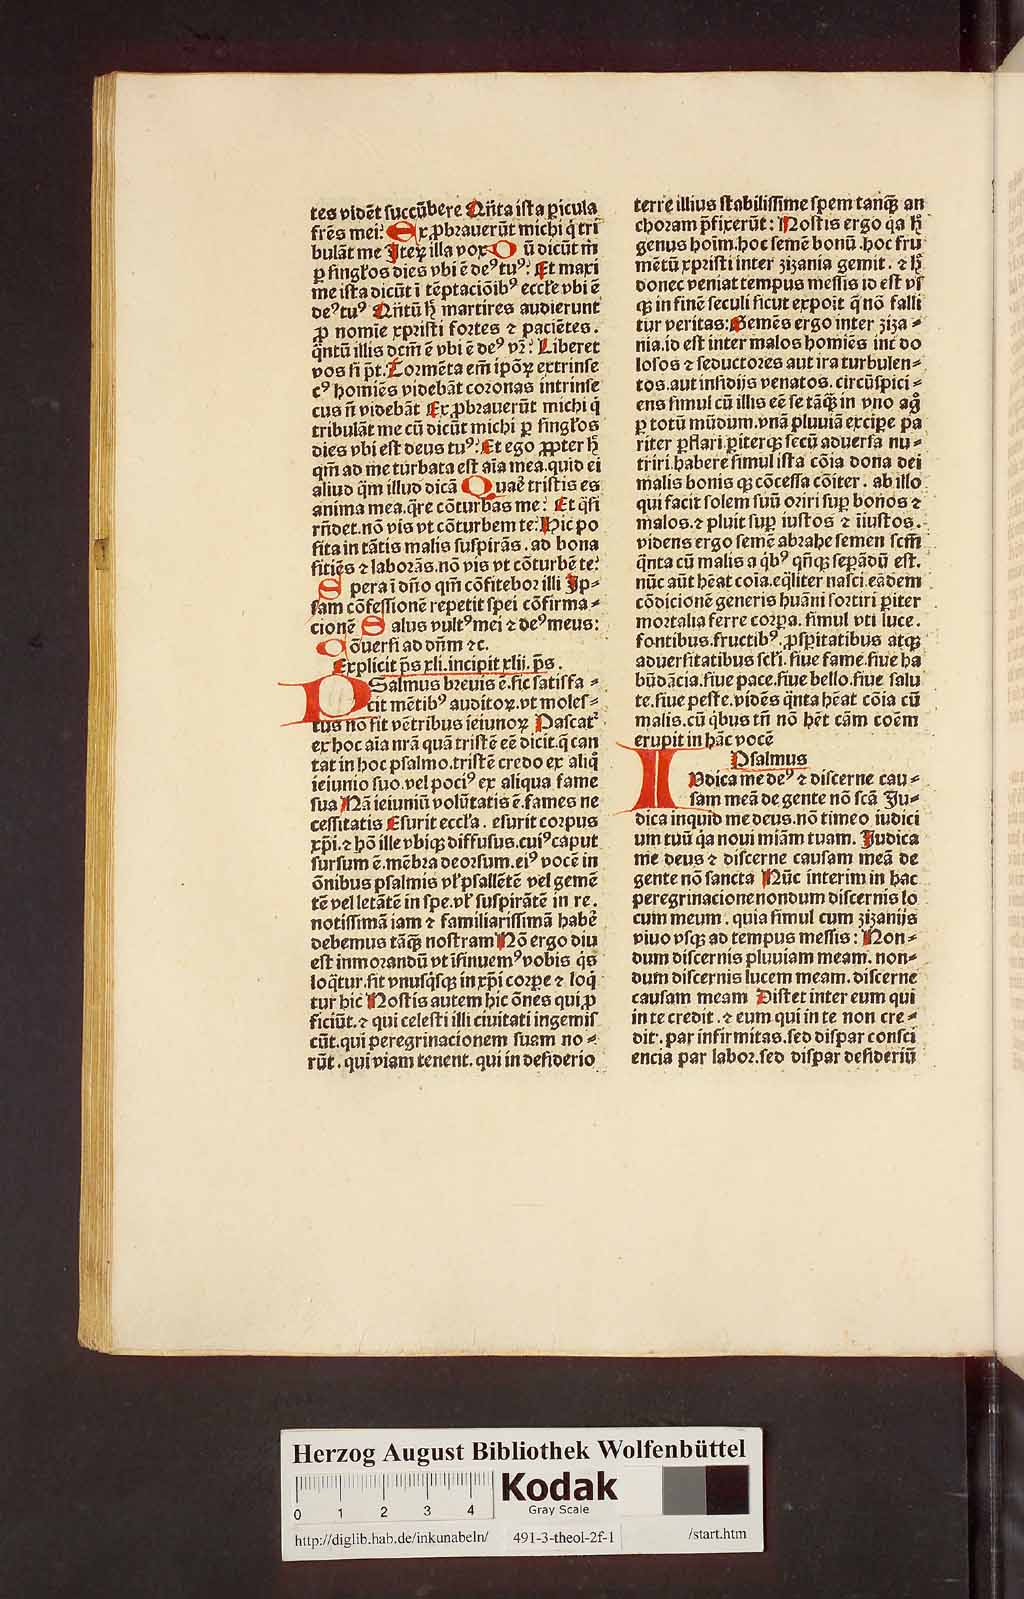 tes vidēt succūbere Qn̄ta ista ꝑicula
fr̄es mei: Ex ꝓbrauerūt michi q̇ tri
bulāt me Iteꝝ illa vox D ū dicūt m̄
ꝑ singłos dies vbi ē deꝰ tuꝰ: Et maxi
me ista dicūt ī tēptaciōibꝰ eccłe vbi ē
deꝰ tuꝰ Qn̄tū h̨ martires audierunt
ꝓ nomīe xpristi fortes ⁊ paciētes.
q̄ntū illis dc̄m ē vbi ē deꝰ vr̄: Liberet
vos si p̄t. Tormēta em̄ ipōꝝ extrinse
cꝰ homīes videbāt coronas intrinse
cus n̄ videbāt Ex ꝓbrauerūt michi q̇
tribulāt me cū dicūt michi ꝑ singłos
dies vbi est deus tuꝰ: Et ego ꝓpter h̨
qm̄ ad me turbata est aīa mea. quid ei
aliud q̄m illud dicā Quaē tristis es
anima mea. q̄re cōturbas me: Et q̄si
rn̄det. nō vis vt cōturbem te: Hic po
sita in tātis malis suspirās. ad bona
sitiēs ⁊ laborās. nō vis vt cōturbē te:
S pera ī dn̄o qm̄ cōfitebor illi Ip⸗
sam cōfessionē repetit spei cōfirma⸗
cionē S alus vultꝰ mei ⁊ deꝰ meus:
Cōuersi ad dn̄m ⁊c.
Explicit p̄s xli. incipit xlij. p̄s.
PSalmus breuis ē. sic satisfa⸗
cit mētibꝰ auditoꝝ. vt moles⸗
tus nō sit vētribus ieiunoꝝ Pascat᷑
ex hoc aīa nrā quā tristē eē dicit. q̄ can
tat in hoc psalmo. tristē credo ex aliq̊
ieiunio suo. vel pociꝰ ex aliqua fame
sua Nā ieiuniū volūtatis ē. fames ne
cessitatis Esurit eccła. esurit corpus
xp̄i. ⁊ hō ille vbiqꝫ diffusus. cuiꝰ caput
sursum ē. mēbra deorsum. eiꝰ vocē in
ōnibus psalmis vł psallētē vel gemē
tē vel letātē in spe. vł suspirātē in re.
notissimā iam ⁊ familiarissimā habē
debemus tāqꝫ nostram Nō ergo diu
est inmorandū vt īsinuemꝰ vobis q̇s
loq̇tur. sit vnusq̇sqꝫ in xp̄i corpe ⁊ loq̇
tur hic Nostis autem hic ōnes qui ꝓ
ficiūt. ⁊ qui celesti illi ciuitati ingemis
cūt. qui peregrinacionem suam no⸗
rūt. qui viam tenent. qui in desiderio
terre illius stabilissime spem tanqꝫ an
choram p̄fixerūt: Nostis ergo q̇a h̨
genus hoīm. hoc semē bonū. hoc fru
mētū xpristi inter zizania gemit. ⁊ h̨
donec veniat tempus messis id est vs
qꝫ in finē seculi sicut expoīt q̄ nō falli
tur veritas: Gemēs ergo inter ziza⸗
nia. id est inter malos homīes int̄ do
losos ⁊ seductores aut ira turbulen⸗
tos. aut insidijs venatos. circūspici⸗
ens simul cū illis eē se tāqꝫ in vno ag̊
ꝑ totū mūdum. vnā pluuiā excipe pa
riter ꝑflari. ꝑiterqꝫ secū aduersa nu⸗
triri. habere simul ista cōia dona dei
malis bonis qꝫ cōcessa cōiter. ab illo
qui facit solem suū oriri suꝑ bonos ⁊
malos. ⁊ pluit suꝑ iustos ⁊ īiustos.
videns ergo semē abrahe semen scm̄
q̄nta cū malis a q̇bꝰ qn̄qꝫ seꝑādū est.
nūc aūt hēat coīa. eq̄liter nasci. eādem
cōdicionē generis huāni sortiri ꝑiter
mortalia ferre corpa. simul vti luce.
fontibus. fructibꝰ. ꝓsꝑitatibus atqꝫ
aduersitatibus scłi. siue fame. siue ha
būdācia. siue pace. siue bello. siue salu
te. siue peste. vidēs q̄nta hēat cōia cū
malis. cū q̇bus tn̄ nō hēt cām coēm
erupit in hāc vocē
Psalmus
IVdica me deꝰ ⁊ discerne cau⸗
sam meā de gente nō scā Iu⸗
dica inquid me deus. nō timeo iudici
um tuū q̇a noui mīam tuam. Iudica
me deus ⁊ discerne causam meā de
gente nō sancta Nūc interim in hac
peregrinacione nondum discernis lo
cum meum. quia simul cum zizanijs
viuo vsqꝫ ad tempus messis: Non⸗
dum discernis pluuiam meam. non⸗
dum discernis lucem meam. discerne
causam meam Distet inter eum qui
in te credit. ⁊ eum qui in te non cre⸗
dit. par infirmitas. sed dispar consci
encia par labor. sed dispar desideriū
Herzog August Bibliothek Wolfenbüttel
0 1 2 3 4
Kodak
Gray Scale
http://diglib.hab.de/inkunabeln/ 491-3-theol-2f-1 /start.htm